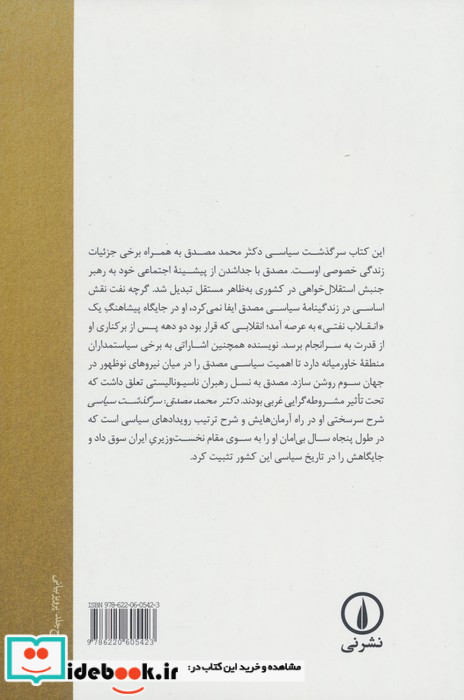 این کتاب سرگذشت سیاسی دکتر محمد مصدق به همراه برخی جزئیات
زندگی خصوصی اوست. مصدق با جداشدن از پیشینهٔ اجتماعی خود به رهبر
جنبش استقلال‌خواهی در کشوری به‌ظاهر مستقل تبدیل شد. گرچه نفت نقش
اساسی در زندگینامهٔ سیاسی مصدق ایفا نمی‌کرد، او در جایگاه پیشاهنگِ یک
«انقلاب نفتی» به عرصه آمد؛ انقلابی که قرار بود دو دهه پس از برکناری او
از قدرت به سرانجام برسد. نویسنده همچنین اشاراتی به برخی سیاستمداران
منطقهٔ خاورمیانه دارد تا اهمیت سیاسی مصدق را در میان نیروهای نوظهور در
جهان سوم روشن سازد. مصدق به نسل رهبران ناسیونالیستی تعلق داشت که
تحت تأثیر مشروطه‌گرایی غربی بودند. دکتر محمد مصدق: سرگذشت سیاسی
شرح سرسختی او در راه آرمان‌هایش و شرح ترتیب رویدادهای سیاسی است که
در طول پنجاه سال بی‌امان او را به سوی مقام نخست‌وزیریِ ایران سوق داد و
جایگاهش را در تاریخ سیاسی این کشور تثبیت کرد.
جلد: پرویز بیانی
ISBN 978-622-06-0542-3
9 786220 605423
نشرنی
idebook.ir
مشاهده و خرید این کتاب در: